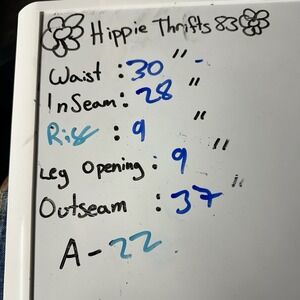 Hippie Thrifts 83
Waist : 30" -
InSeam : 28"
Rise : 9"
Leg Opening : 9"
Outseam : 37"
A - 22